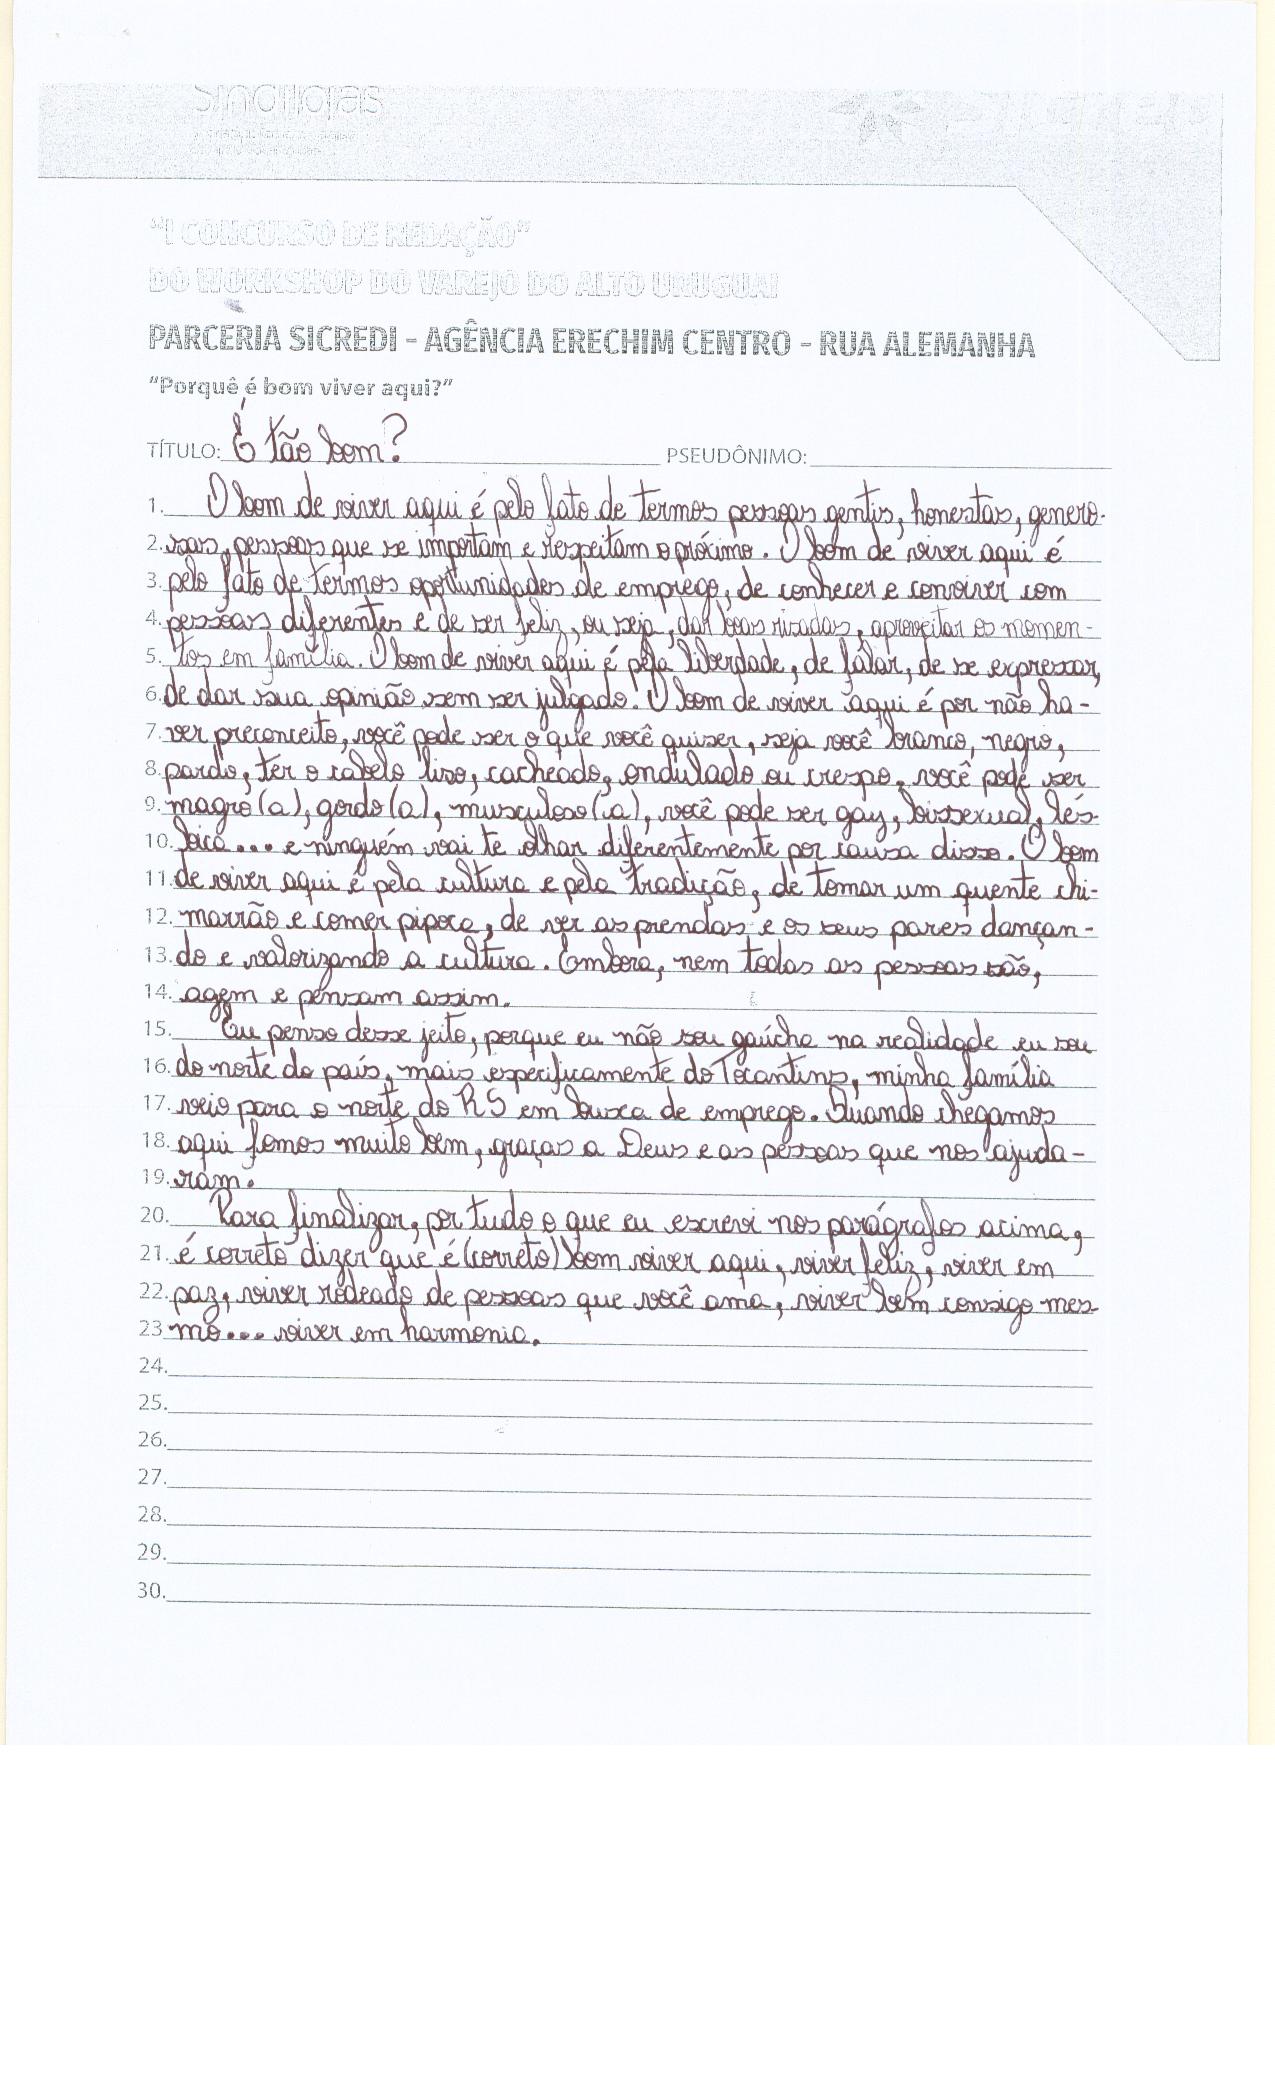 Sindilojas
"I CONCURSO DE REDAÇÃO"
DO WORKSHOP DO VAREJO DO ALTO URUGUAI
PARCERIA SICREDI - AGÊNCIA ERECHIM CENTRO - RUA ALEMANHA
"Porquê é bom viver aqui?"
TÍTULO: É tão bom? PSEUDÔNIMO:
1. O bom de viver aqui é pelo fato de termos pessoas gentis, honestas, genero-
2. sas, pessoas que se importam e respeitam o próximo. O bom de viver aqui é
3. pelo fato de termos oportunidades de emprego, de conhecer e conviver com
4. pessoas diferentes e de ser feliz, ou seja, dar boas risadas, aproveitar os momen-
5. tos em família. O bom de viver aqui é pela liberdade, de falar, de se expressar,
6. de dar sua opinião sem ser julgado. O bom de viver aqui é por não ha-
7. ver preconceito, você pode ser o que você quiser, seja você branco, negro,
8. pardo, ter o cabelo liso, cacheado, ondulado ou crespo, você pode ser
9. magro(a), gordo(a), musculoso(a), você pode ser gay, bissexual, lés-
10. bica... e ninguém vai te olhar diferentemente por causa disso. O bom
11. de viver aqui é pela cultura e pela tradição, de tomar um quente chi-
12. marrão e comer pipoca, de ver as prendas e os seus pares dançan-
13. do e valorizando a cultura. Embora, nem todas as pessoas são,
14. agem e pensam assim.
15. Eu penso desse jeito, porque eu não sou gaúcha na realidade eu sou
16. do norte do país, mais especificamente do Tocantins, minha família
17. veio para o norte do RS em busca de emprego. Quando chegamos
18. aqui fomos muito bem, graças a Deus e as pessoas que nos ajuda-
19. ram.
20. Para finalizar, por tudo o que eu escrevi nos parágrafos acima,
21. é correto dizer que é (correto) bom viver aqui, viver feliz, viver em
22. paz, viver rodeado de pessoas que você ama, viver bem consigo mes-
23 mo... viver em harmonia.
24.
25.
26.
27.
28.
29.
30.